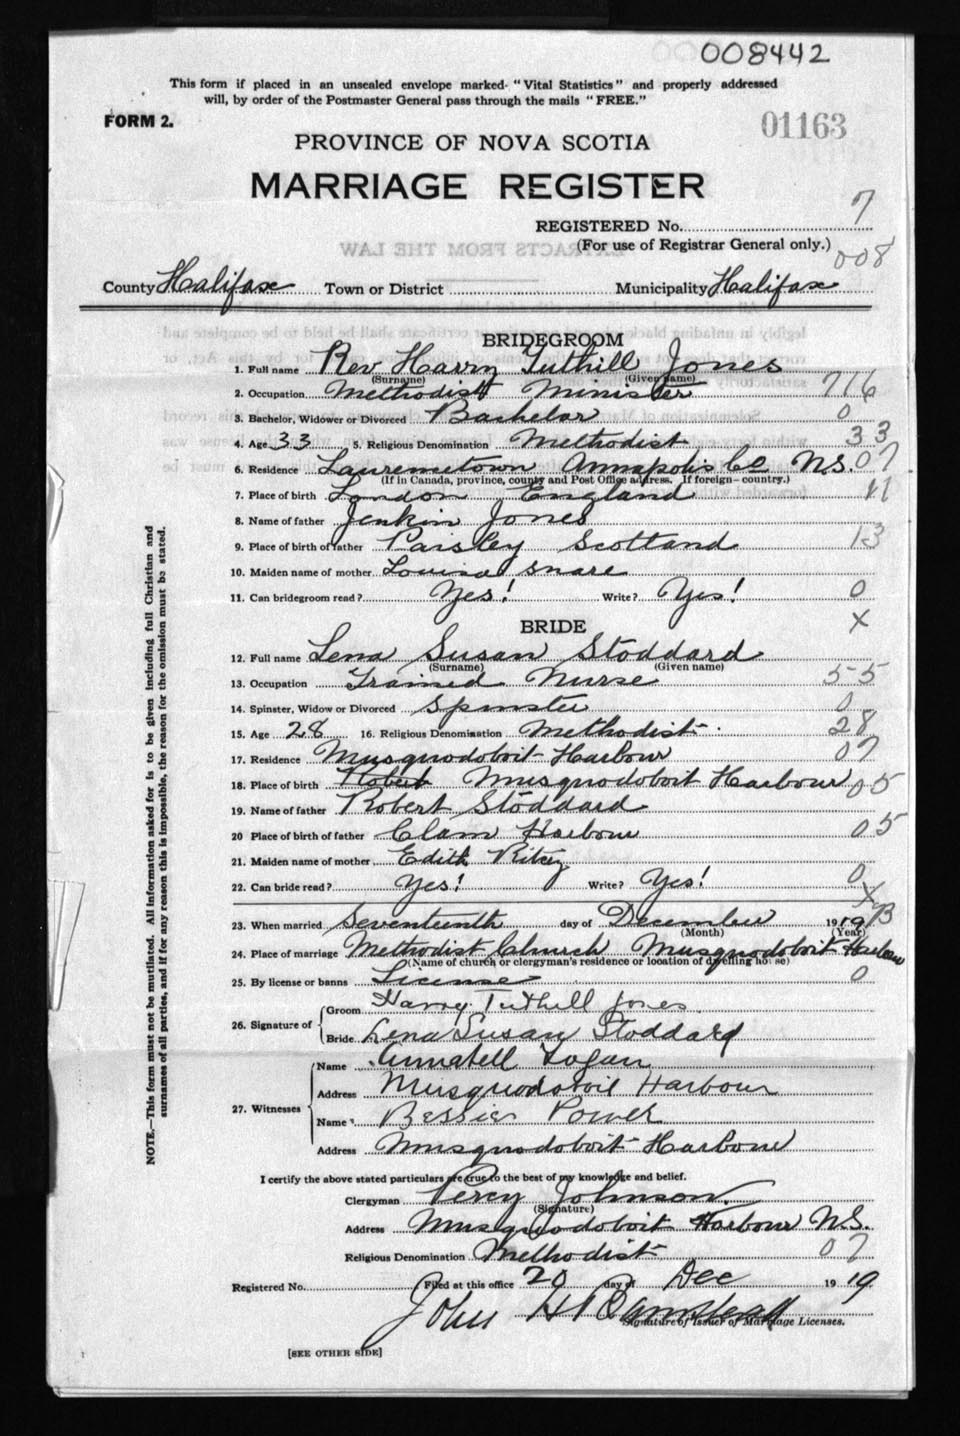 008442
This form if placed in an unsealed envelope marked "Vital Statistics" and properly addressed
will, by order of the Postmaster General pass through the mails "FREE."
FORM 2.
01163
PROVINCE OF NOVA SCOTIA
MARRIAGE REGISTER
7
REGISTERED No.
(For use of Registrar General only.)
008
EXTRACTS FROM THE LAW
County Halifax Town or District Municipality Halifax
BRIDEGROOM
1. Full name Rev Harry Tuthill Jones
(Surname) (Given name)
2. Occupation Methodist Minister 716
3. Bachelor, Widower or Divorced Bachelor 0
4. Age 33 5. Religious Denomination Methodist 33
6. Residence Laurencetown Annapolis Co N.S. 07
(If in Canada, province, county and Post Office address. If foreign—country.)
7. Place of birth London England 11
8. Name of father Jenkin Jones
9. Place of birth of father Paisley Scotland 13
10. Maiden name of mother Louisa Snare
11. Can bridegroom read? Yes! Write? Yes! 0
X
BRIDE
12. Full name Lena Susan Stoddard
(Surname) (Given name)
13. Occupation Trained Nurse 55
14. Spinster, Widow or Divorced Spinster 0
15. Age 28 16. Religious Denomination Methodist 28
17. Residence Musquodoboit Harbour 07
18. Place of birth Robert Musquodoboit Harbour 05
19. Name of father Robert Stoddard
20 Place of birth of father Clam Harbour 05
21. Maiden name of mother Edith Ritcy
22. Can bride read? Yes! Write? Yes! 0
X
23. When married Seventeenth day of December 1919
(Month) (Year)
24. Place of marriage Methodist Church Musquodoboit Harbour
(Name of church or clergyman's residence or location of dwelling house)
25. By license or banns License 0
26. Signature of Groom Harry Tuthill Jones
Bride Lena Susan Stoddard
27. Witnesses Name Annabell Logan
Address Musquodoboit Harbour
Name Bessie Power
Address Musquodoboit Harbour
I certify the above stated particulars are true to the best of my knowledge and belief.
Clergyman Percy Johnson
(Signature)
Address Musquodoboit Harbour N.S.
Religious Denomination Methodist 07
Registered No. Filed at this office 20 day of Dec 1919
John H
Signature of Issuer of Marriage Licenses.
[SEE OTHER SIDE]
NOTE.—This form must not be mutilated. All information asked for is to be given including full Christian and
surnames of all parties, and if for any reason this is impossible, the reason for the omission must be stated.